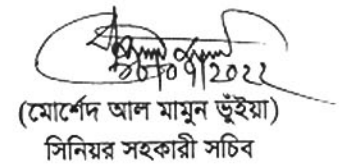 ০৬/০৭/২০২২
(মোর্শেদ আল মামুন ভূঁইয়া)
সিনিয়র সহকারী সচিব